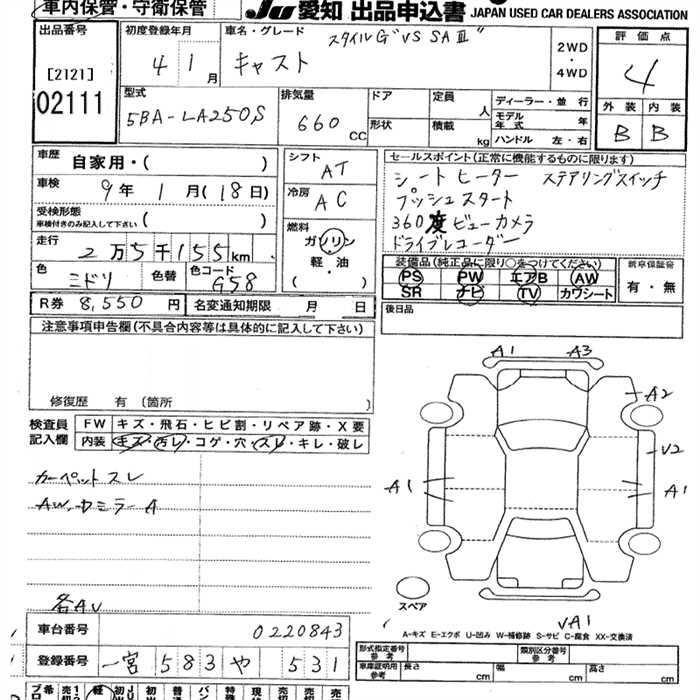 車内保管・守衛保管
JU 愛知 出品申込書 JAPAN USED CAR DEALERS ASSOCIATION
出品番号 初度登録年月 車名・グレード スタイルG"VS SAⅢ" 2WD・4WD 評価点
[2121] 4 1月 キャスト 4
02111 型式 5BA-LA250S 排気量 660 CC ドア 定員 人 ディーラー・並行 外装 内装
形状 積載 kg モデル年式 年 B B
ハンドル 左・右
車歴 自家用・( ) シフト AT セールスポイント(正常に機能するものに限ります)
車検 9年 1月(18日) 冷房 AC シートヒーター ステアリングスイッチ
受検形態 車検付きのみ記入して下さい ( ) プッシュスタート
燃料 ガソリン 軽・油 ( ) 360度ビューカメラ
走行 2万5千155km ドライブレコーダー
色 ミドリ 色替 色コード G58 装備品(純正品に限り○をつけてください) 新車保証書
PS PW エアB AW 有・無
R券 8,550円 名変通知期限 月 日 SR ナビ TV カワシート
注意事項申告欄(不具合内容等は具体的に記入して下さい) 後日品
修復歴 有(箇所 )
検査員記入欄 FW キズ・飛石・ヒビ割・リペア跡・X要
内装 キズ・汚レ・コゲ・穴・スレ・キレ・破レ
カーペットスレ
AW、ドミラーA
各AU
A1 A3
A2
V2
A1 A1
スペア
VA1
A-キズ E-エクボ U-凹み W-補修跡 S-サビ C-腐食 XX-交換済
車台番号 0220843
登録番号 一宮 583 や 531
形式指定番号 参考 類別区分番号 参考
車庫証明用 参考 長さ cm 幅 cm 高さ cm